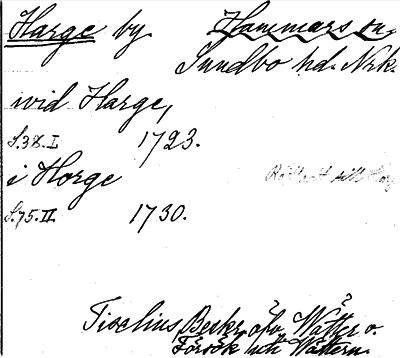 Harge by. Hammars sn.
Sundbo hd. Nrk.
wid Harge,
S.38.I 1723.
i Horge
S.75.II 1730.
Tiselius, Beskr. öfv. Wätter o.
Försök uti Wättern.